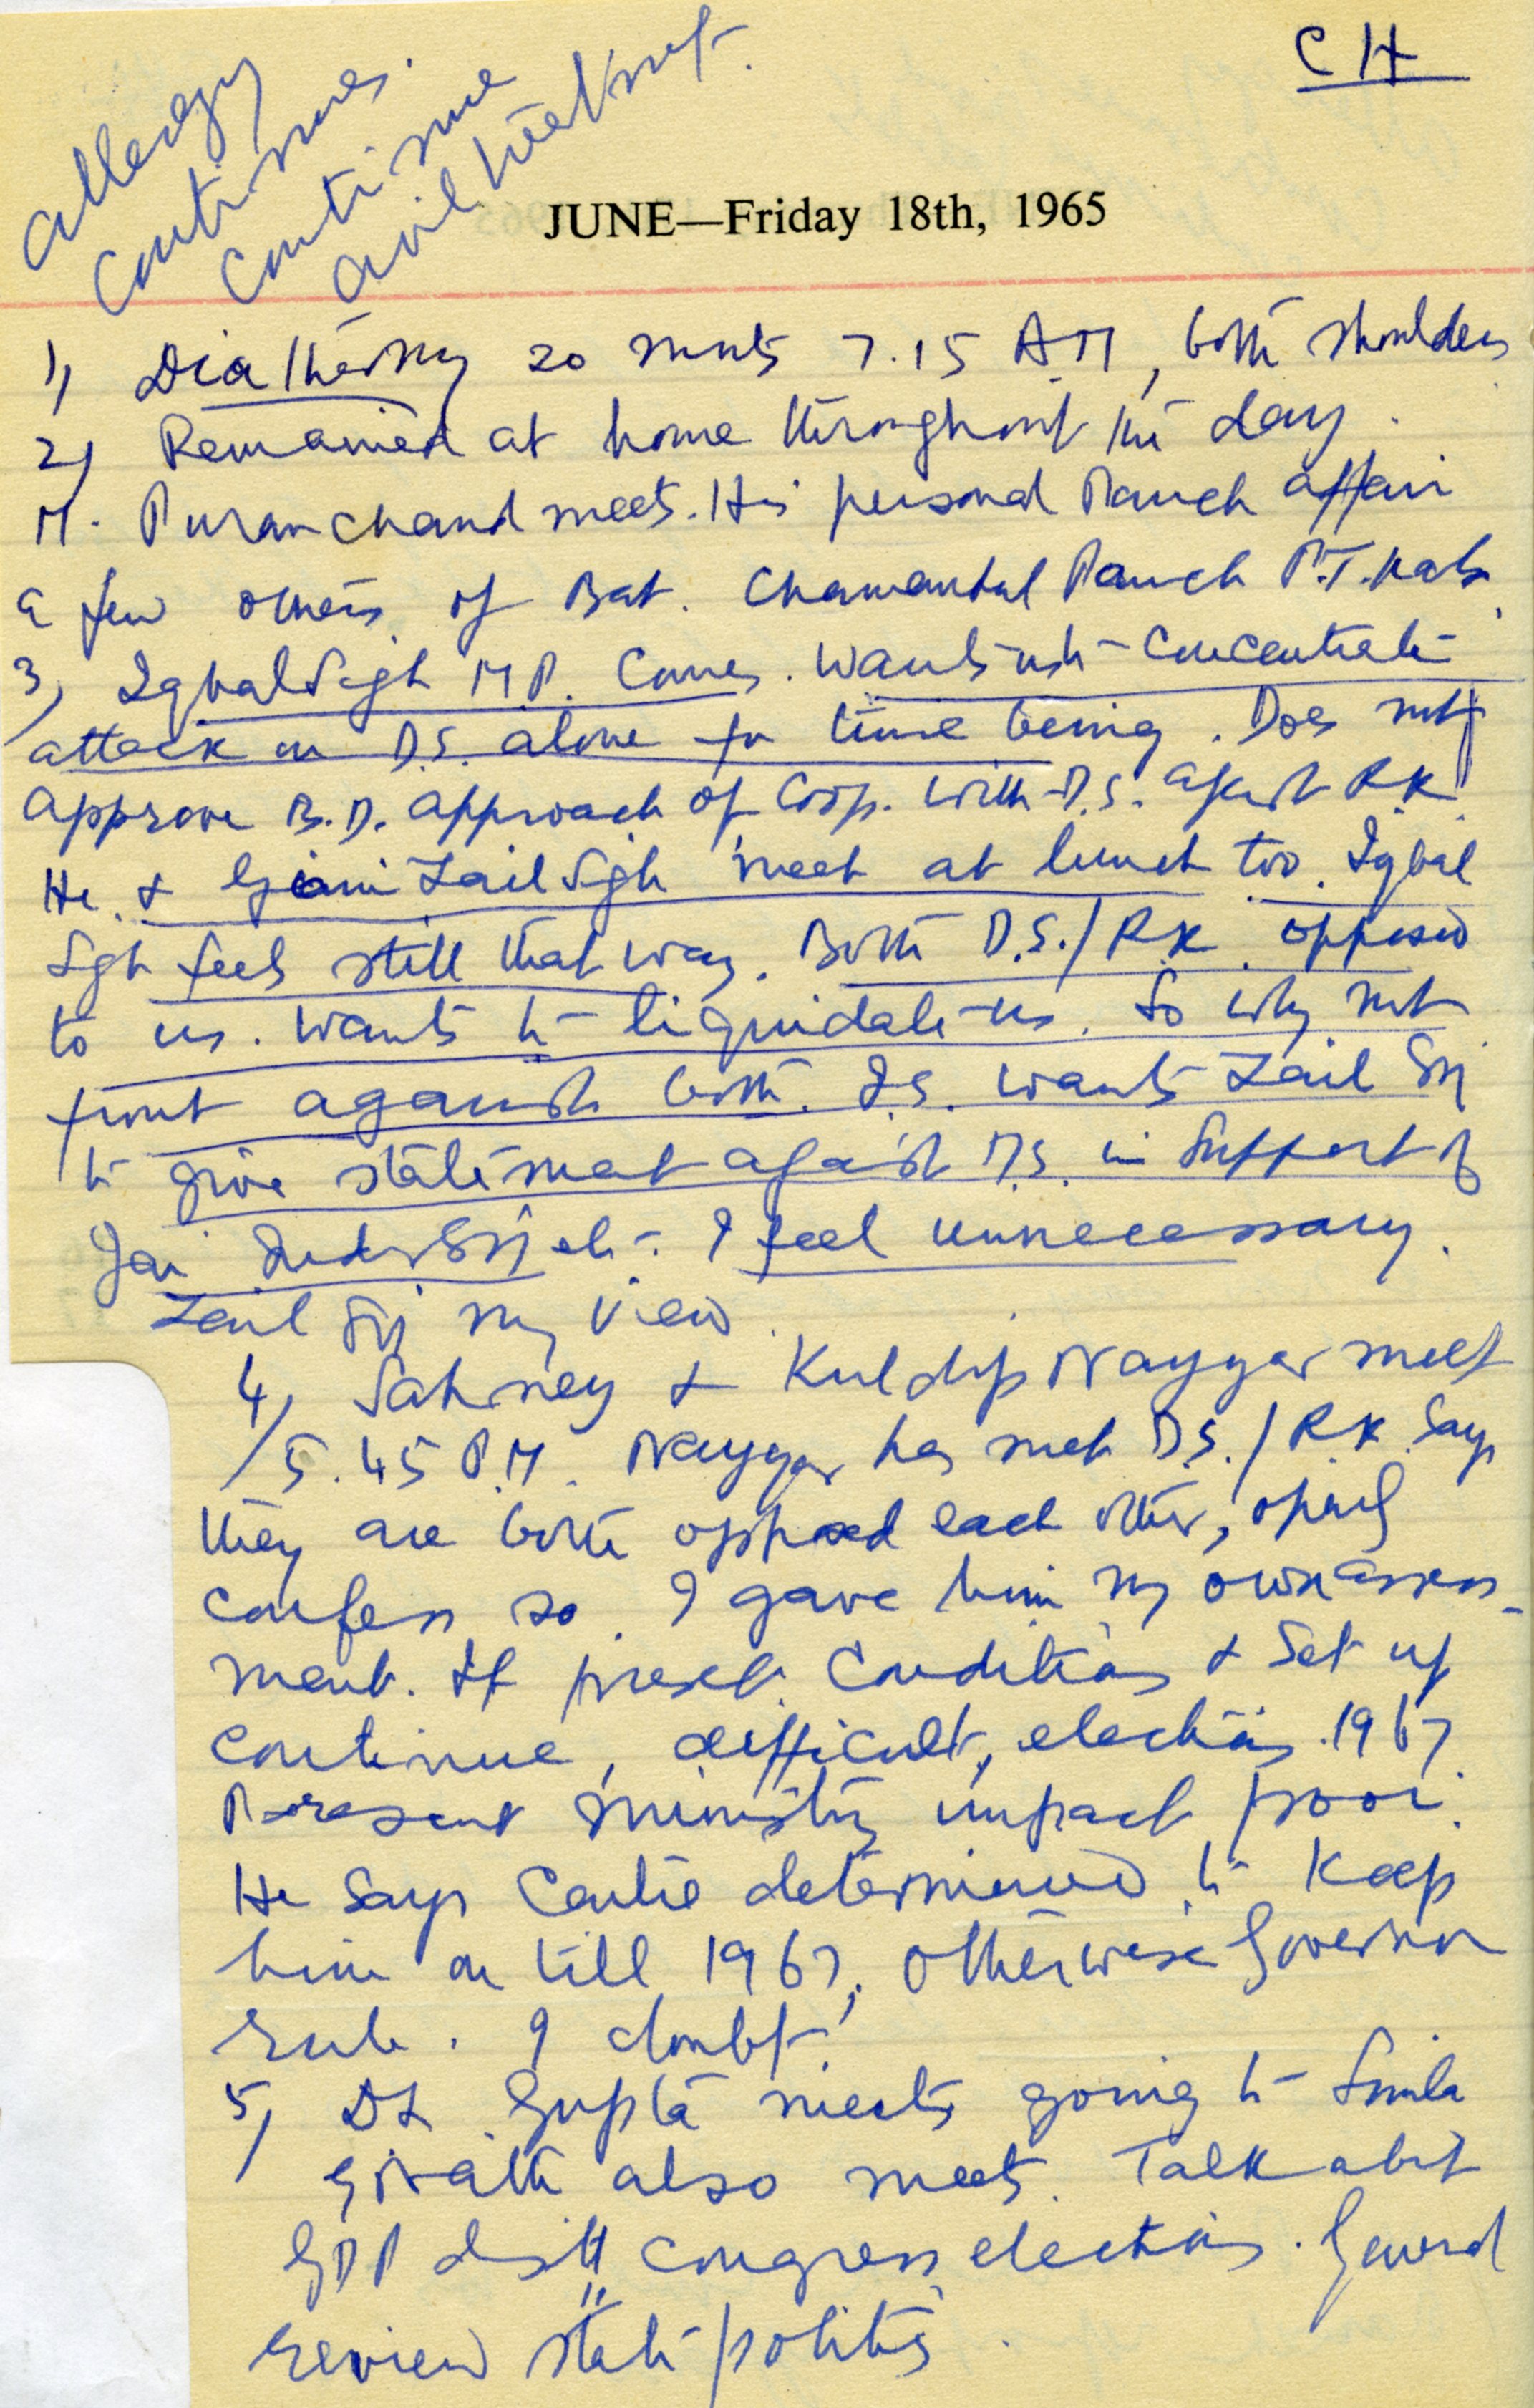 CH
Allergy
Continues.
Continue
avil treatmet.
JUNE—Friday 18th, 1965
1) Diathermy 20 mnts 7.15 AM, both shoulders
2) Remained at home throughout the day.
M. Puranchand meets. His personal Panch affair
& few others of Bat. Chamanlal Panch
3) Iqbal Sigh M.P. Comes. Wants us to Concentrate
attack on D.S. alone for time being. Does not
approve B.D. approach of Coop. with D.S. against R.K.
He & Giani Zail Sgh meet at lunch too. Iqbal
Sgh feels still that way. Both D.S./R.K. opposed
to us. Wants to liquidate us. So why not
front against both. I.S. wants Zail Sgh
to give statement against D.S. in Support of
Jai Inder Sgh etc. I feel unnecessary.
Zail Sgh my view.
4) Sahney & Kuldip Nayyar meet
5.45 P.M. Nayyar has met D.S./R.K. Says
they are both opposed each other, openly
confess so. I gave him my own assess-
ment. If present Conditions & Set up
continue, difficult, elections 1967.
Present ministry impact poor.
He says Centre determined to Keep
him on till 1967, otherwise Governor
rule. I doubt.
5) DL Gupta meets going to Simla
also meets. Talk about
GDP distt Congress elections. General
review state politics.